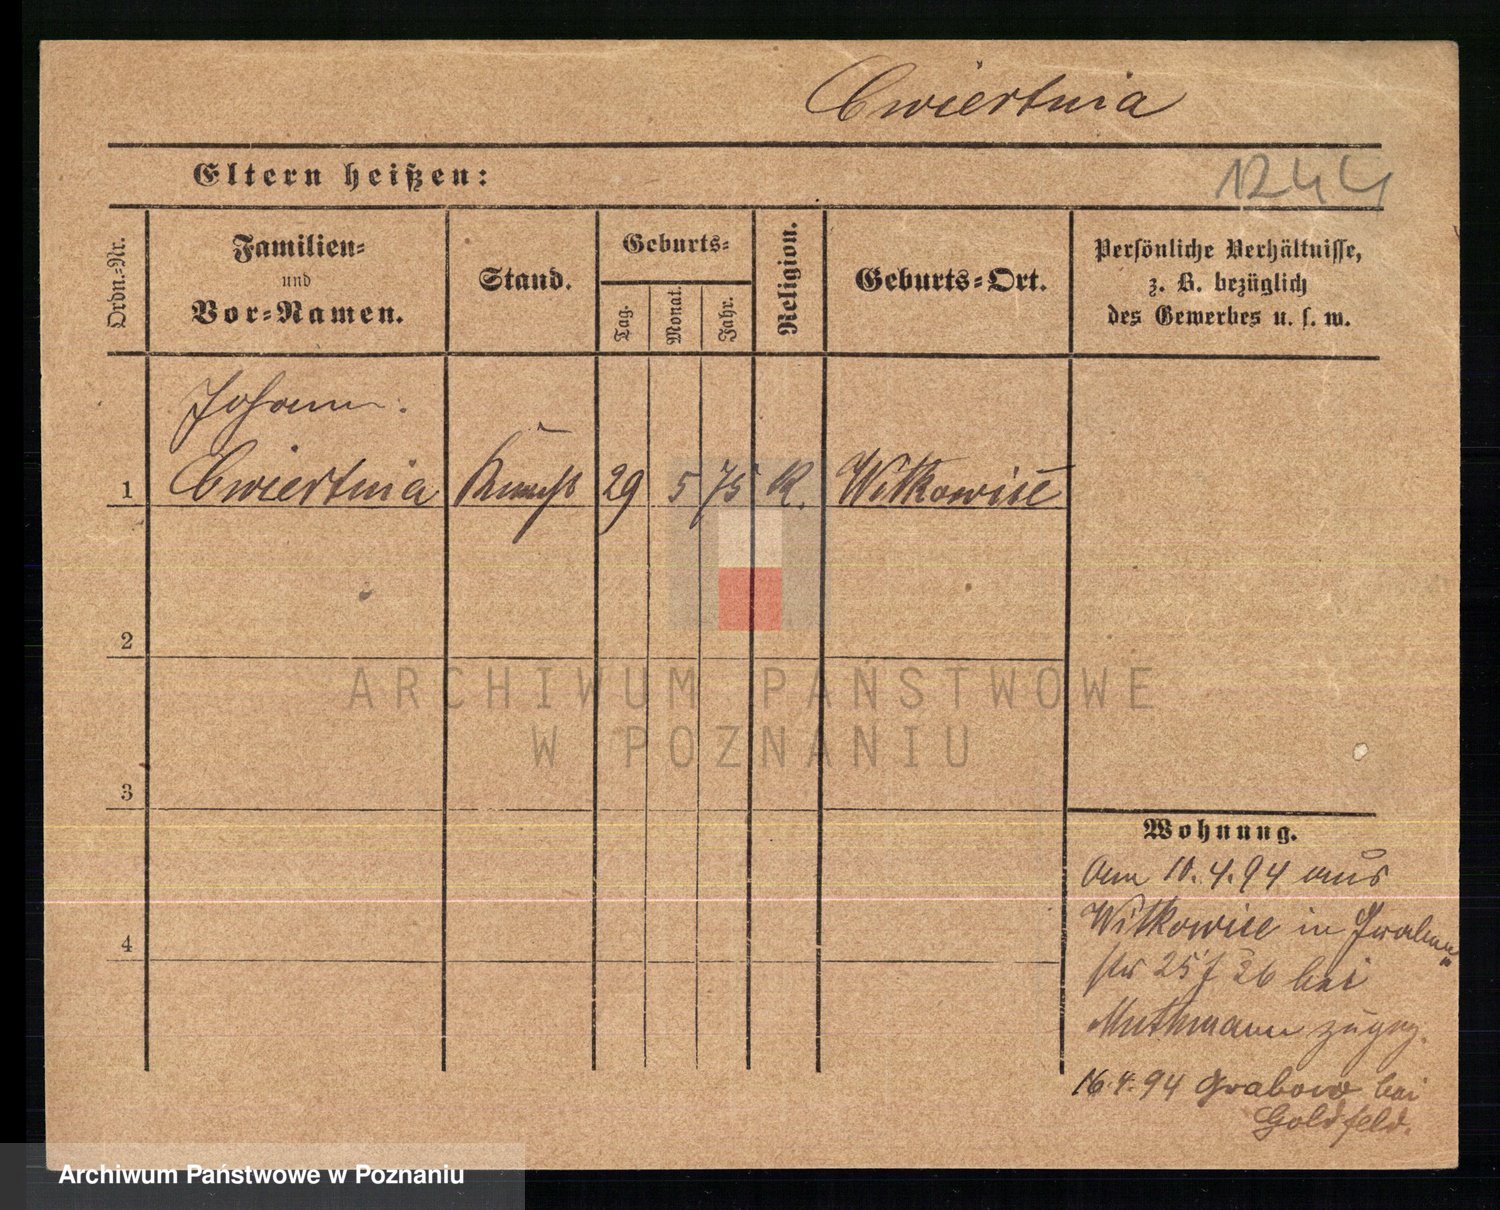 Cwiertnia
Eltern heißen:
1244
Ordn.-Nr.
Familien-
und
Vor-Namen.
Stand.
Geburts-
Tag.
Monat.
Jahr.
Religion.
Geburts-Ort.
Persönliche Verhältnisse,
z. B. bezüglich
des Gewerbes u. s. w.
Johann.
1 Cwiertnia Knecht 29 5 75 K. Witkowice
2
ARCHIWUM PAŃSTWOWE
W POZNANIU
3
Wohnung.
Am 10.4.94 aus
4
Witkowice in
str 25 bei
Muthmann zugez.
16.4.94 Grabow bei
Goldfeld.
Archiwum Państwowe w Poznaniu